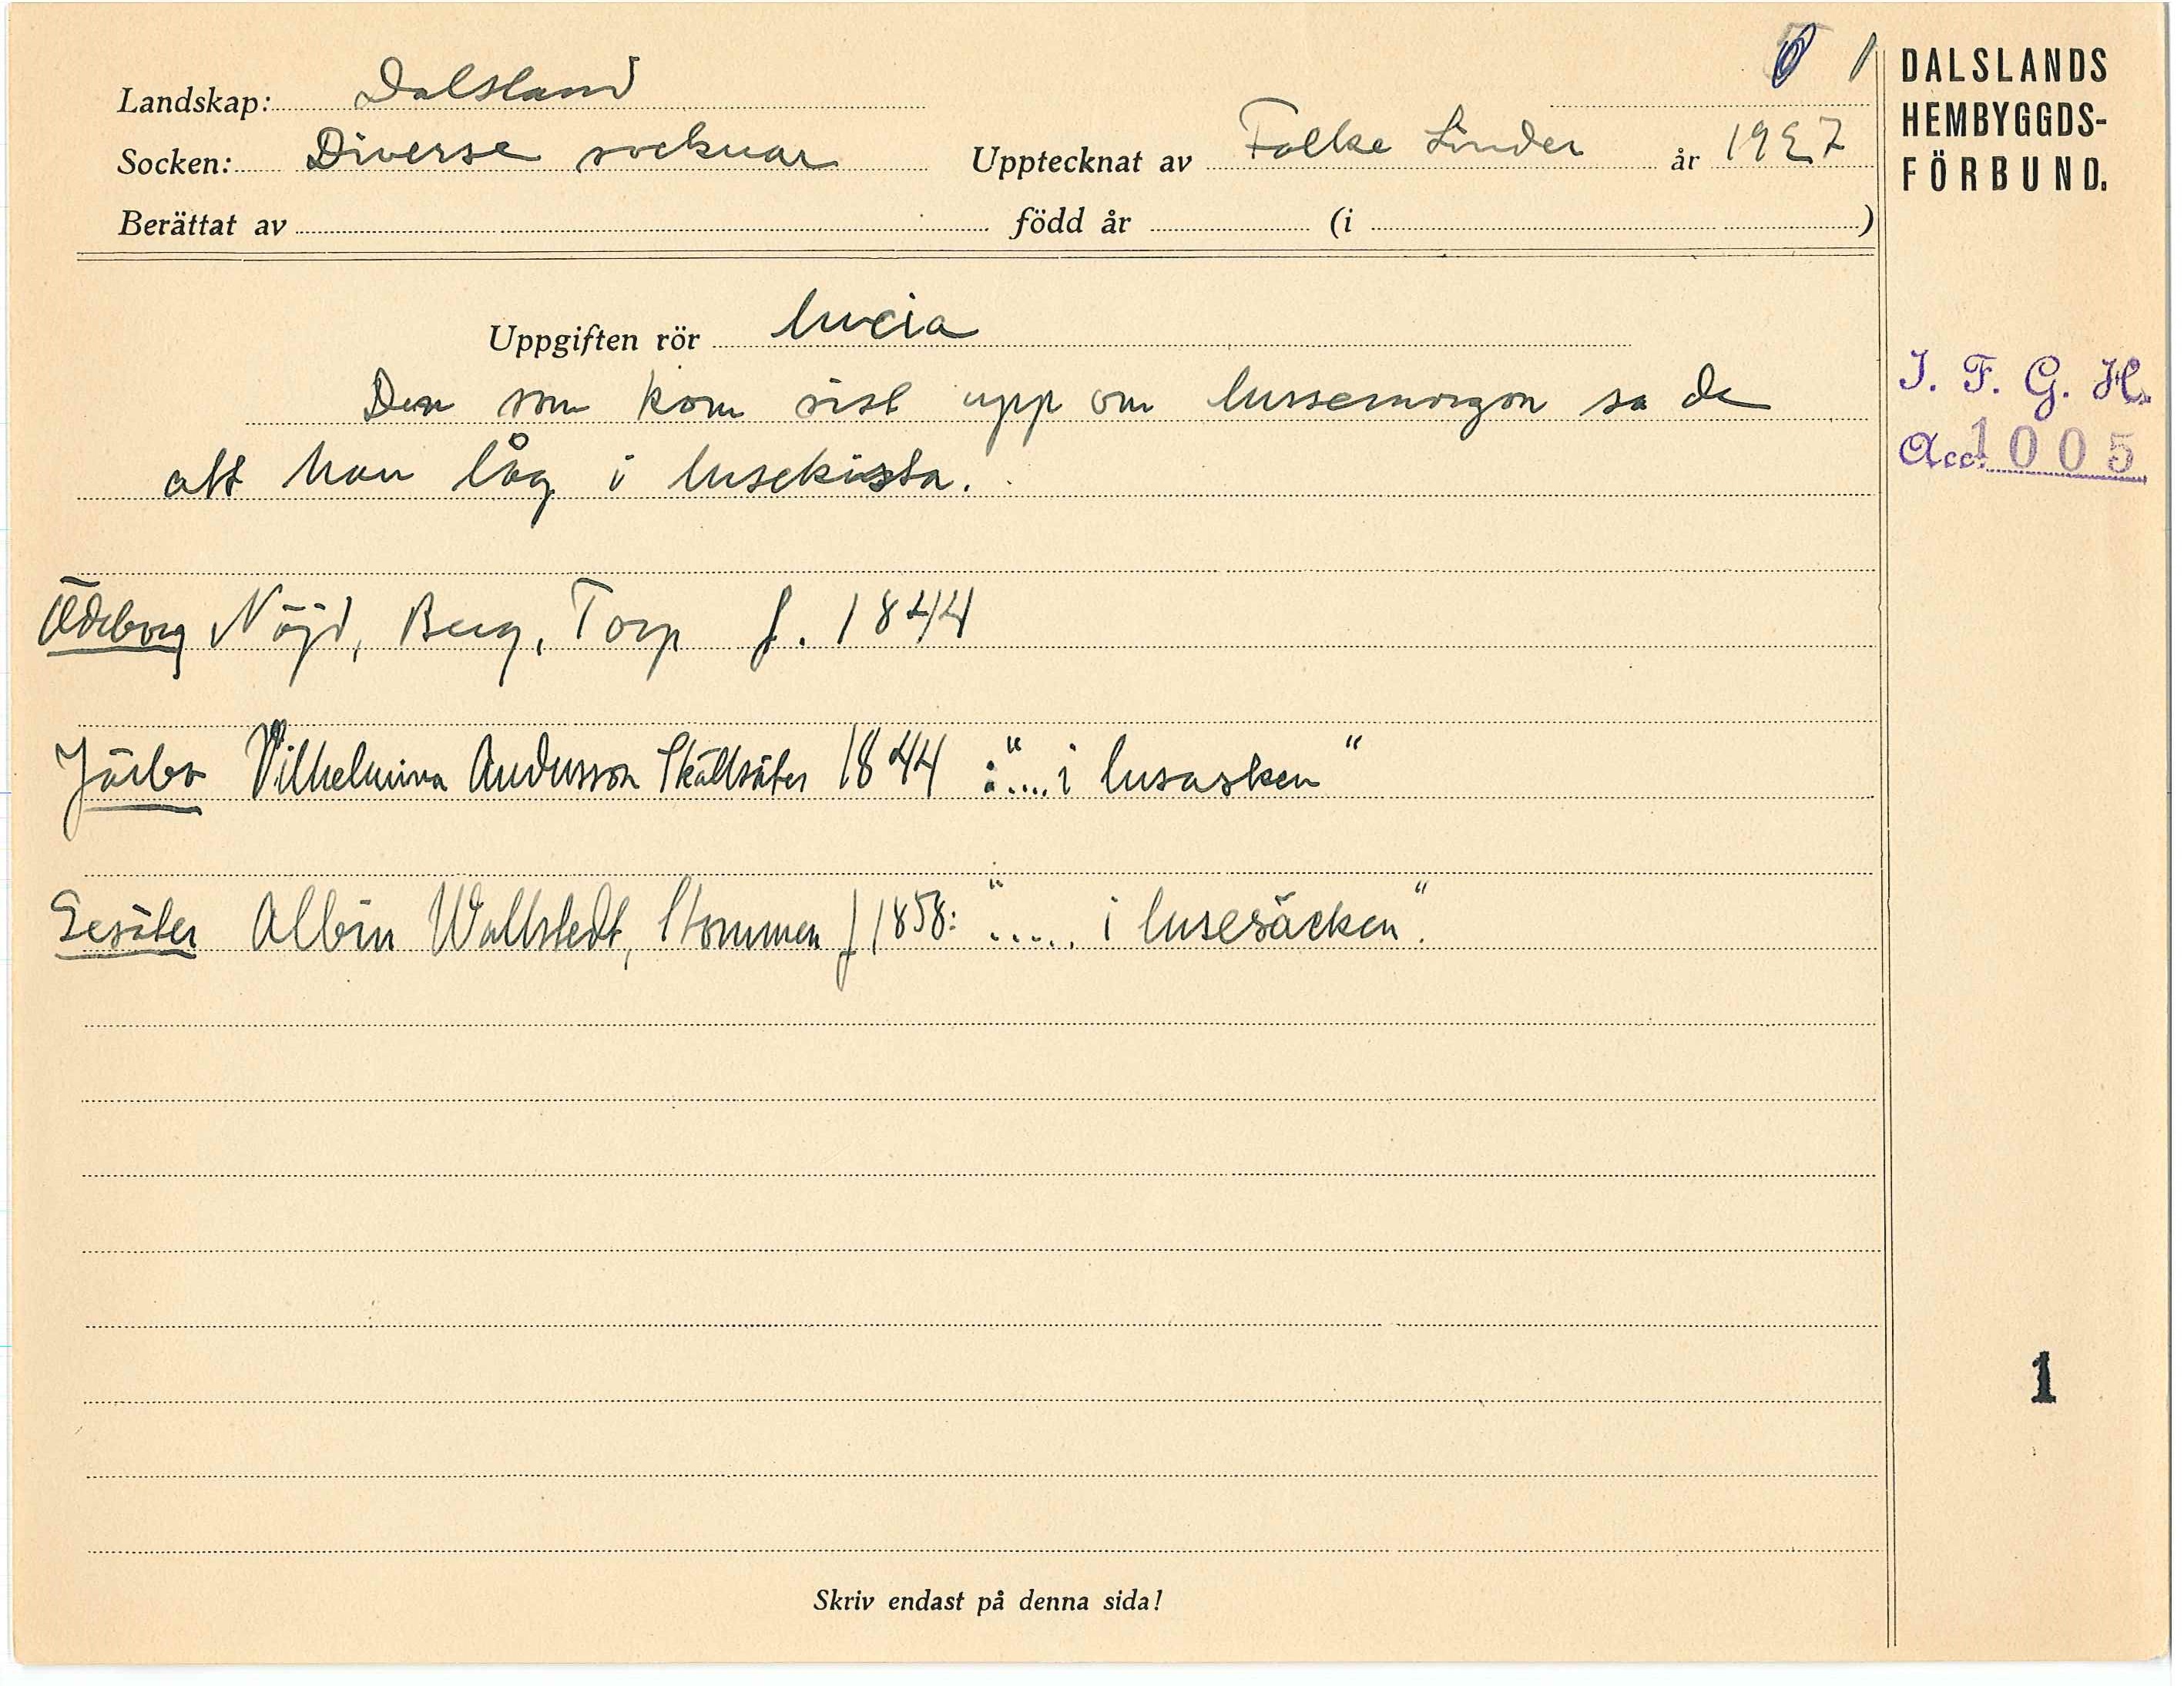 Landskap: Dalsland
Socken: Diverse socknar Upptecknat av Folke Linder år 1927
Berättat av född år (i )
DALSLANDS
HEMBYGGDS-
FÖRBUND.
Uppgiften rör lucia
Den som kom sist upp om lussemorgon sa de
att han låg i lusekista.
I. F. G. H.
Acc. 1005
Ödeborg Nöjd, Berg, Torp f. 1844
Järbo Vilhelmina Andersson Skällsäter 1844 : ".... i lusasken"
Gesäter Albin Wallstedt, Stommen f 1858: "..... i lusesäcken".
1
Skriv endast på denna sida!